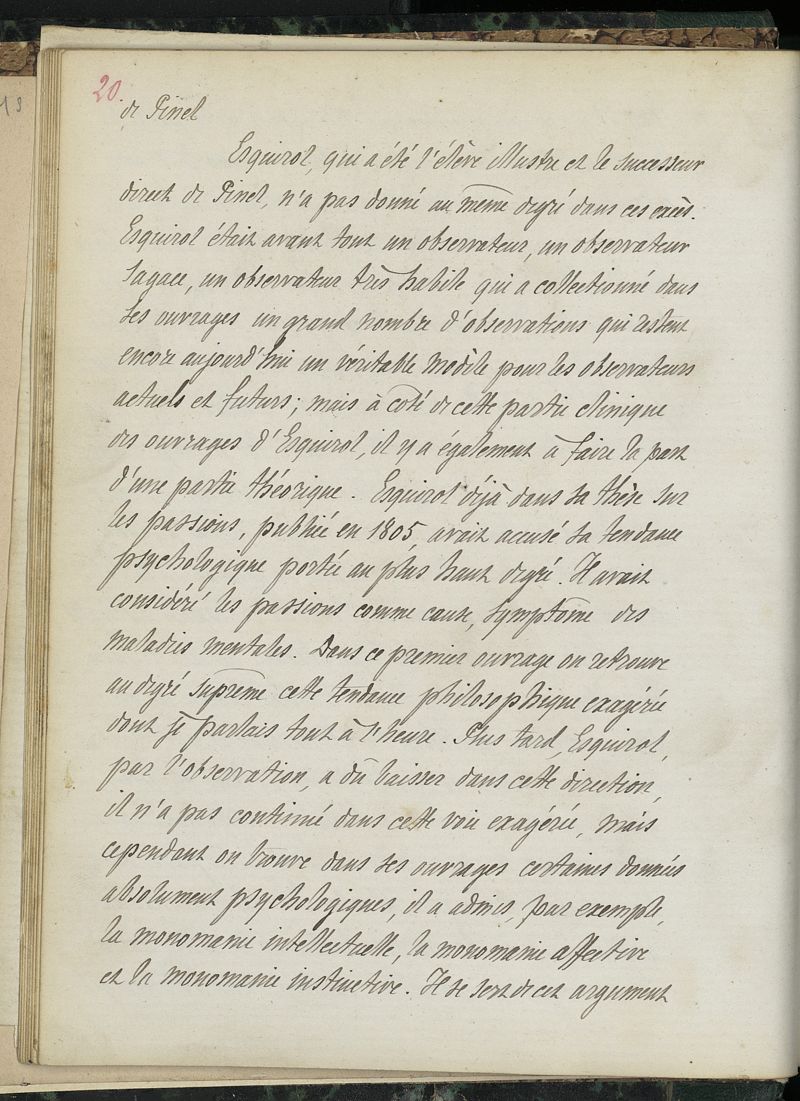 20
de Pinel
Esquirol, qui a été l'élève illustre et le successeur
direct de Pinel, n'a pas donné au même degré dans ces excès.
Esquirol était avant tout un observateur, un observateur
sagace, un observateur très habile qui a collectionné dans
ses ouvrages un grand nombre d'observations qui restent
encore aujourd'hui un véritable modèle pour les observateurs
actuels et futurs; mais à côté de cette partie clinique
des ouvrages d'Esquirol, il y a également à faire la part
d'une partie théorique. Esquirol déjà dans sa thèse sur
les passions, publiée en 1805, avait accusé sa tendance
psychologique portée au plus haut degré. Il avait
considéré les passions comme cause, symptôme des
maladies mentales. Dans ce premier ouvrage on retrouve
au degré suprême cette tendance philosophique exagérée
dont je parlais tout à l'heure. Plus tard, Esquirol,
par l'observation, a dû baisser dans cette direction,
il n'a pas continué dans cette voie exagérée, mais
cependant on trouve dans ses ouvrages certaines données
absolument psychologiques, il a admis, par exemple,
la monomanie intellectuelle, la monomanie affective
et la monomanie instinctive. Il se sert de cet argument